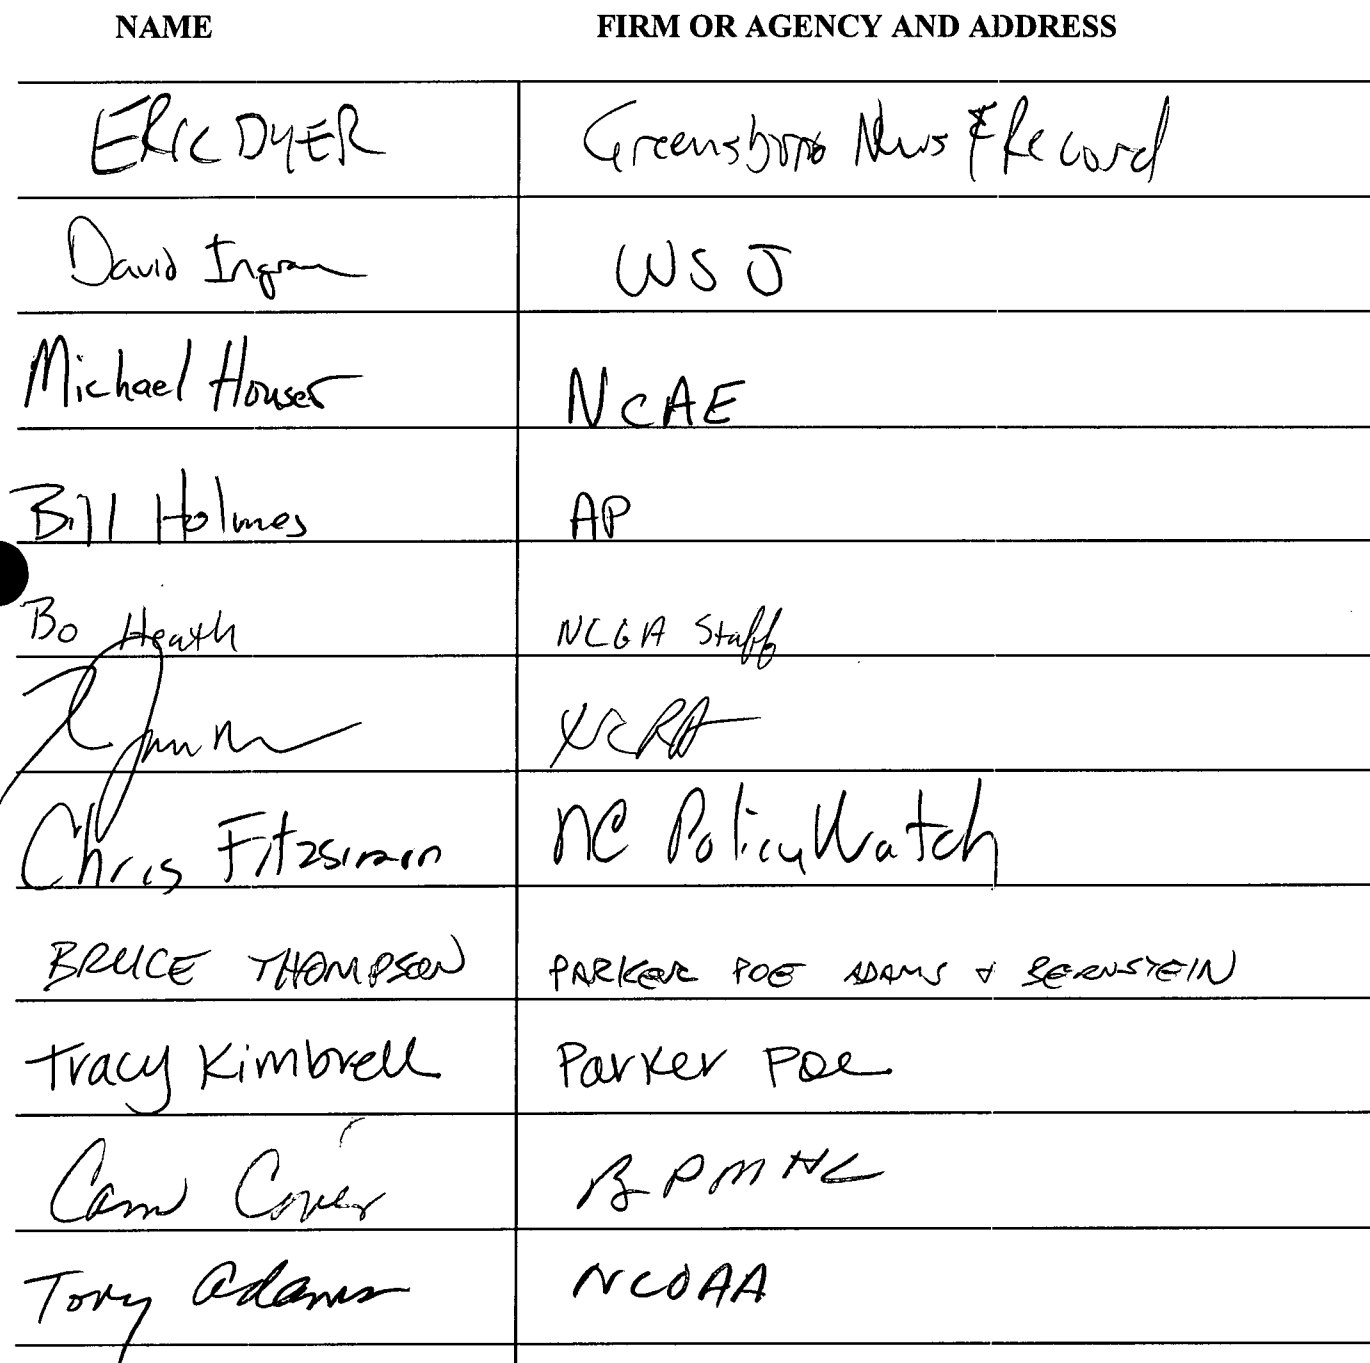 NAME FIRM OR AGENCY AND ADDRESS
ERIC DYER Greensboro News & Record
David Ingram WSJ
Michael Houser NCAE
Bill Holmes AP
Bo Heath NCGA Staff
NCRA
Chris Fitzsimon NC Policy Watch
BRUCE THOMPSON PARKER POE ADAMS & BERNSTEIN
Tracy Kimbrell Parker Poe
Cam Cover BPMHL
Tony Adams NCOAA